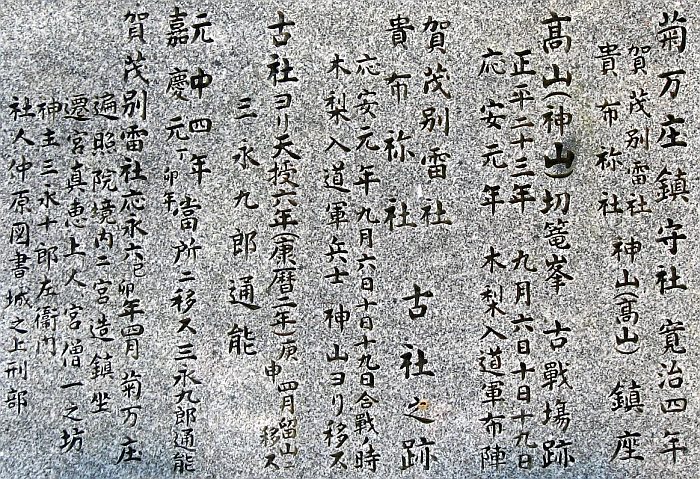 菊万庄鎮守社 寛治四年
賀茂別雷社
貴布祢社 神山(髙山) 鎮座
髙山(神山)切篭峯 古戦場跡
正平二十三年 九月六日十日十九日
応安元年 木梨入道軍布陣
賀茂別雷社
貴布祢社 古社之跡
応安元年九月六日十日十九日合戦ノ時
木梨入道軍兵士 神山ヨリ移ス
古社ヨリ天授六年(康暦二年)庚申 四月留山ニ移ス
三永九郎通能
元中四年
嘉慶元丁卯年 當所ニ移ス三永九郎通能
賀茂別雷社応永六己卯年四月 菊万庄
遍照院境内ニ宮造鎮坐
遷宮真恵上人 宮僧一之坊
神主三永十郎左衛門
社人仲原図書城之上刑部